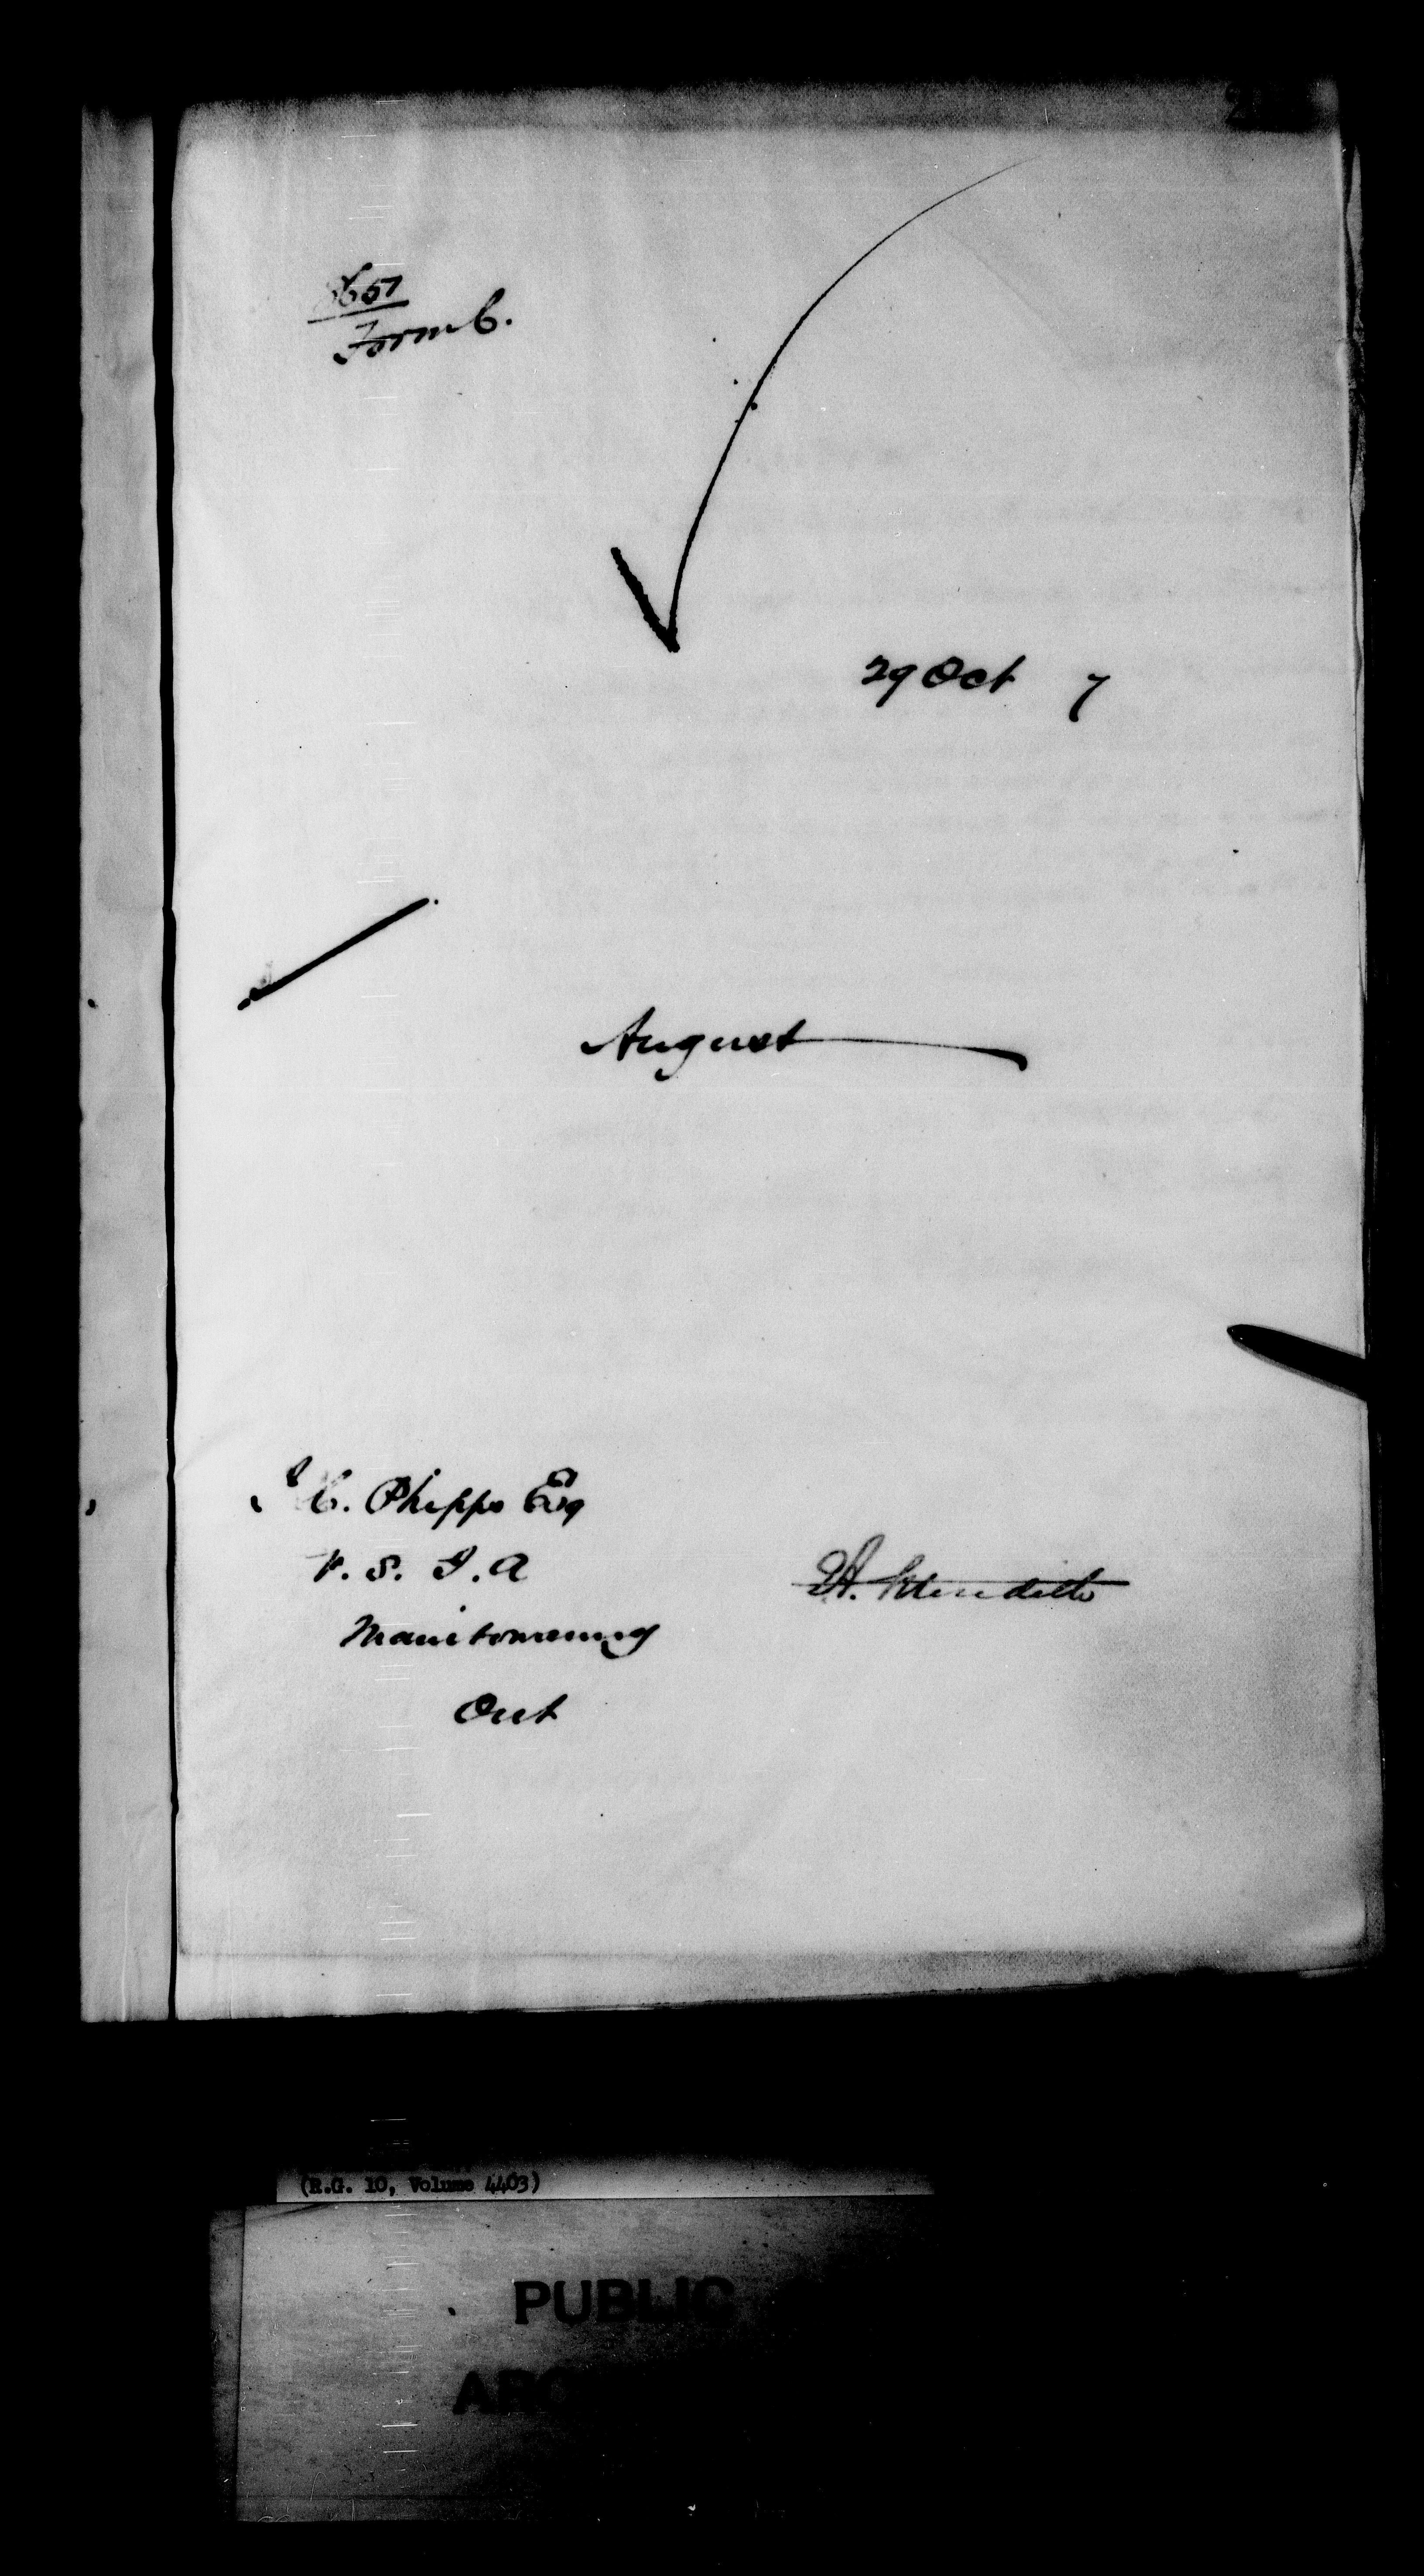 Form C.
29 Oct 7
August
J. C. Phipps Esq
V. S. I. A
Manitowaning
Ont
E.A. Meredith
(R.G. 10, Volume 4403)
PUBLIC